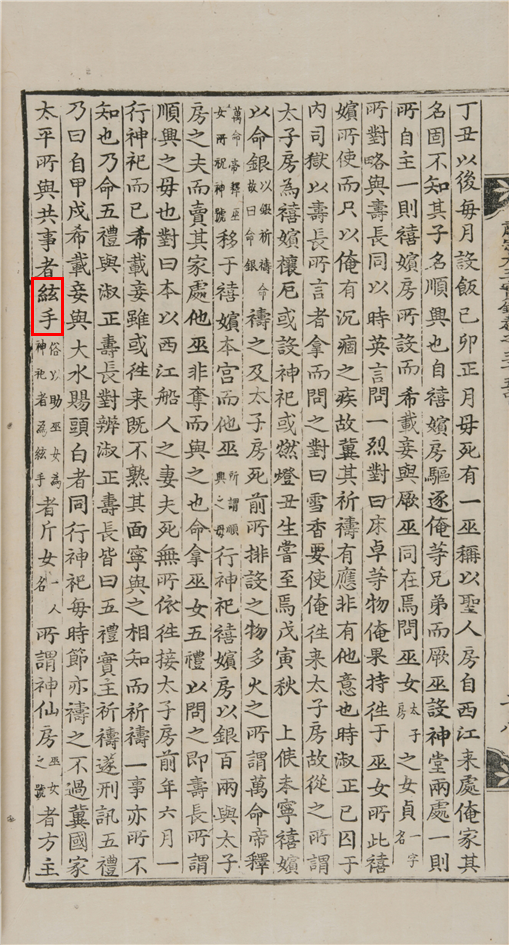 丁丑以後每月設飯己卯正月母死有一巫稱以聖人房自西江來處俺家其
名固不知其子名順興也自禧嬪房驅逐俺等兄弟而厥巫設神堂兩處一則
所自主一則禧嬪房所設而希載妾與厥巫同在焉問巫女太子房之女貞一字名
所對略與壽長同以時英言問一烈對曰床卓等物俺果持往于巫女所此禧
嬪所使而只以俺有沉痼之疾故冀其祈禱有應非有他意也時淑正已囚于
內司獄以壽長所言者拿而問之對曰雪香要使俺往來太子房故從之所謂
太子房為禧嬪禳厄或設神祀或燃燈丑生嘗至焉戊寅秋 上候未寧禧嬪
以命銀以銀祈禱命故曰命銀禱之及太子房死前所排設之物多火之所謂萬命帝釋
萬命帝釋巫女所祝神號移于禧嬪本宮而他巫所謂順興之母行神祀禧嬪房以銀百兩與太子
房之夫而賣其家處他巫非奪而與之也命拿巫女五禮以問之即壽長所謂
順興之母也對曰本以西江船人之妻夫死無所依往接太子房前年六月一
行神祀而已希載妾雖或往來既不熟其面寧與之相知而祈禱一事亦所不
知也乃命五禮與淑正壽長對辨淑正壽長皆曰五禮實主祈禱遂刑訊五禮
乃曰自甲戌希載妾與大水賜頭白者同行神祀每時節亦禱之不過冀國家
太平所與共事者絃手俗以助巫女為神祀者為絃手者斤女一人名所謂神仙房巫女之號者方主